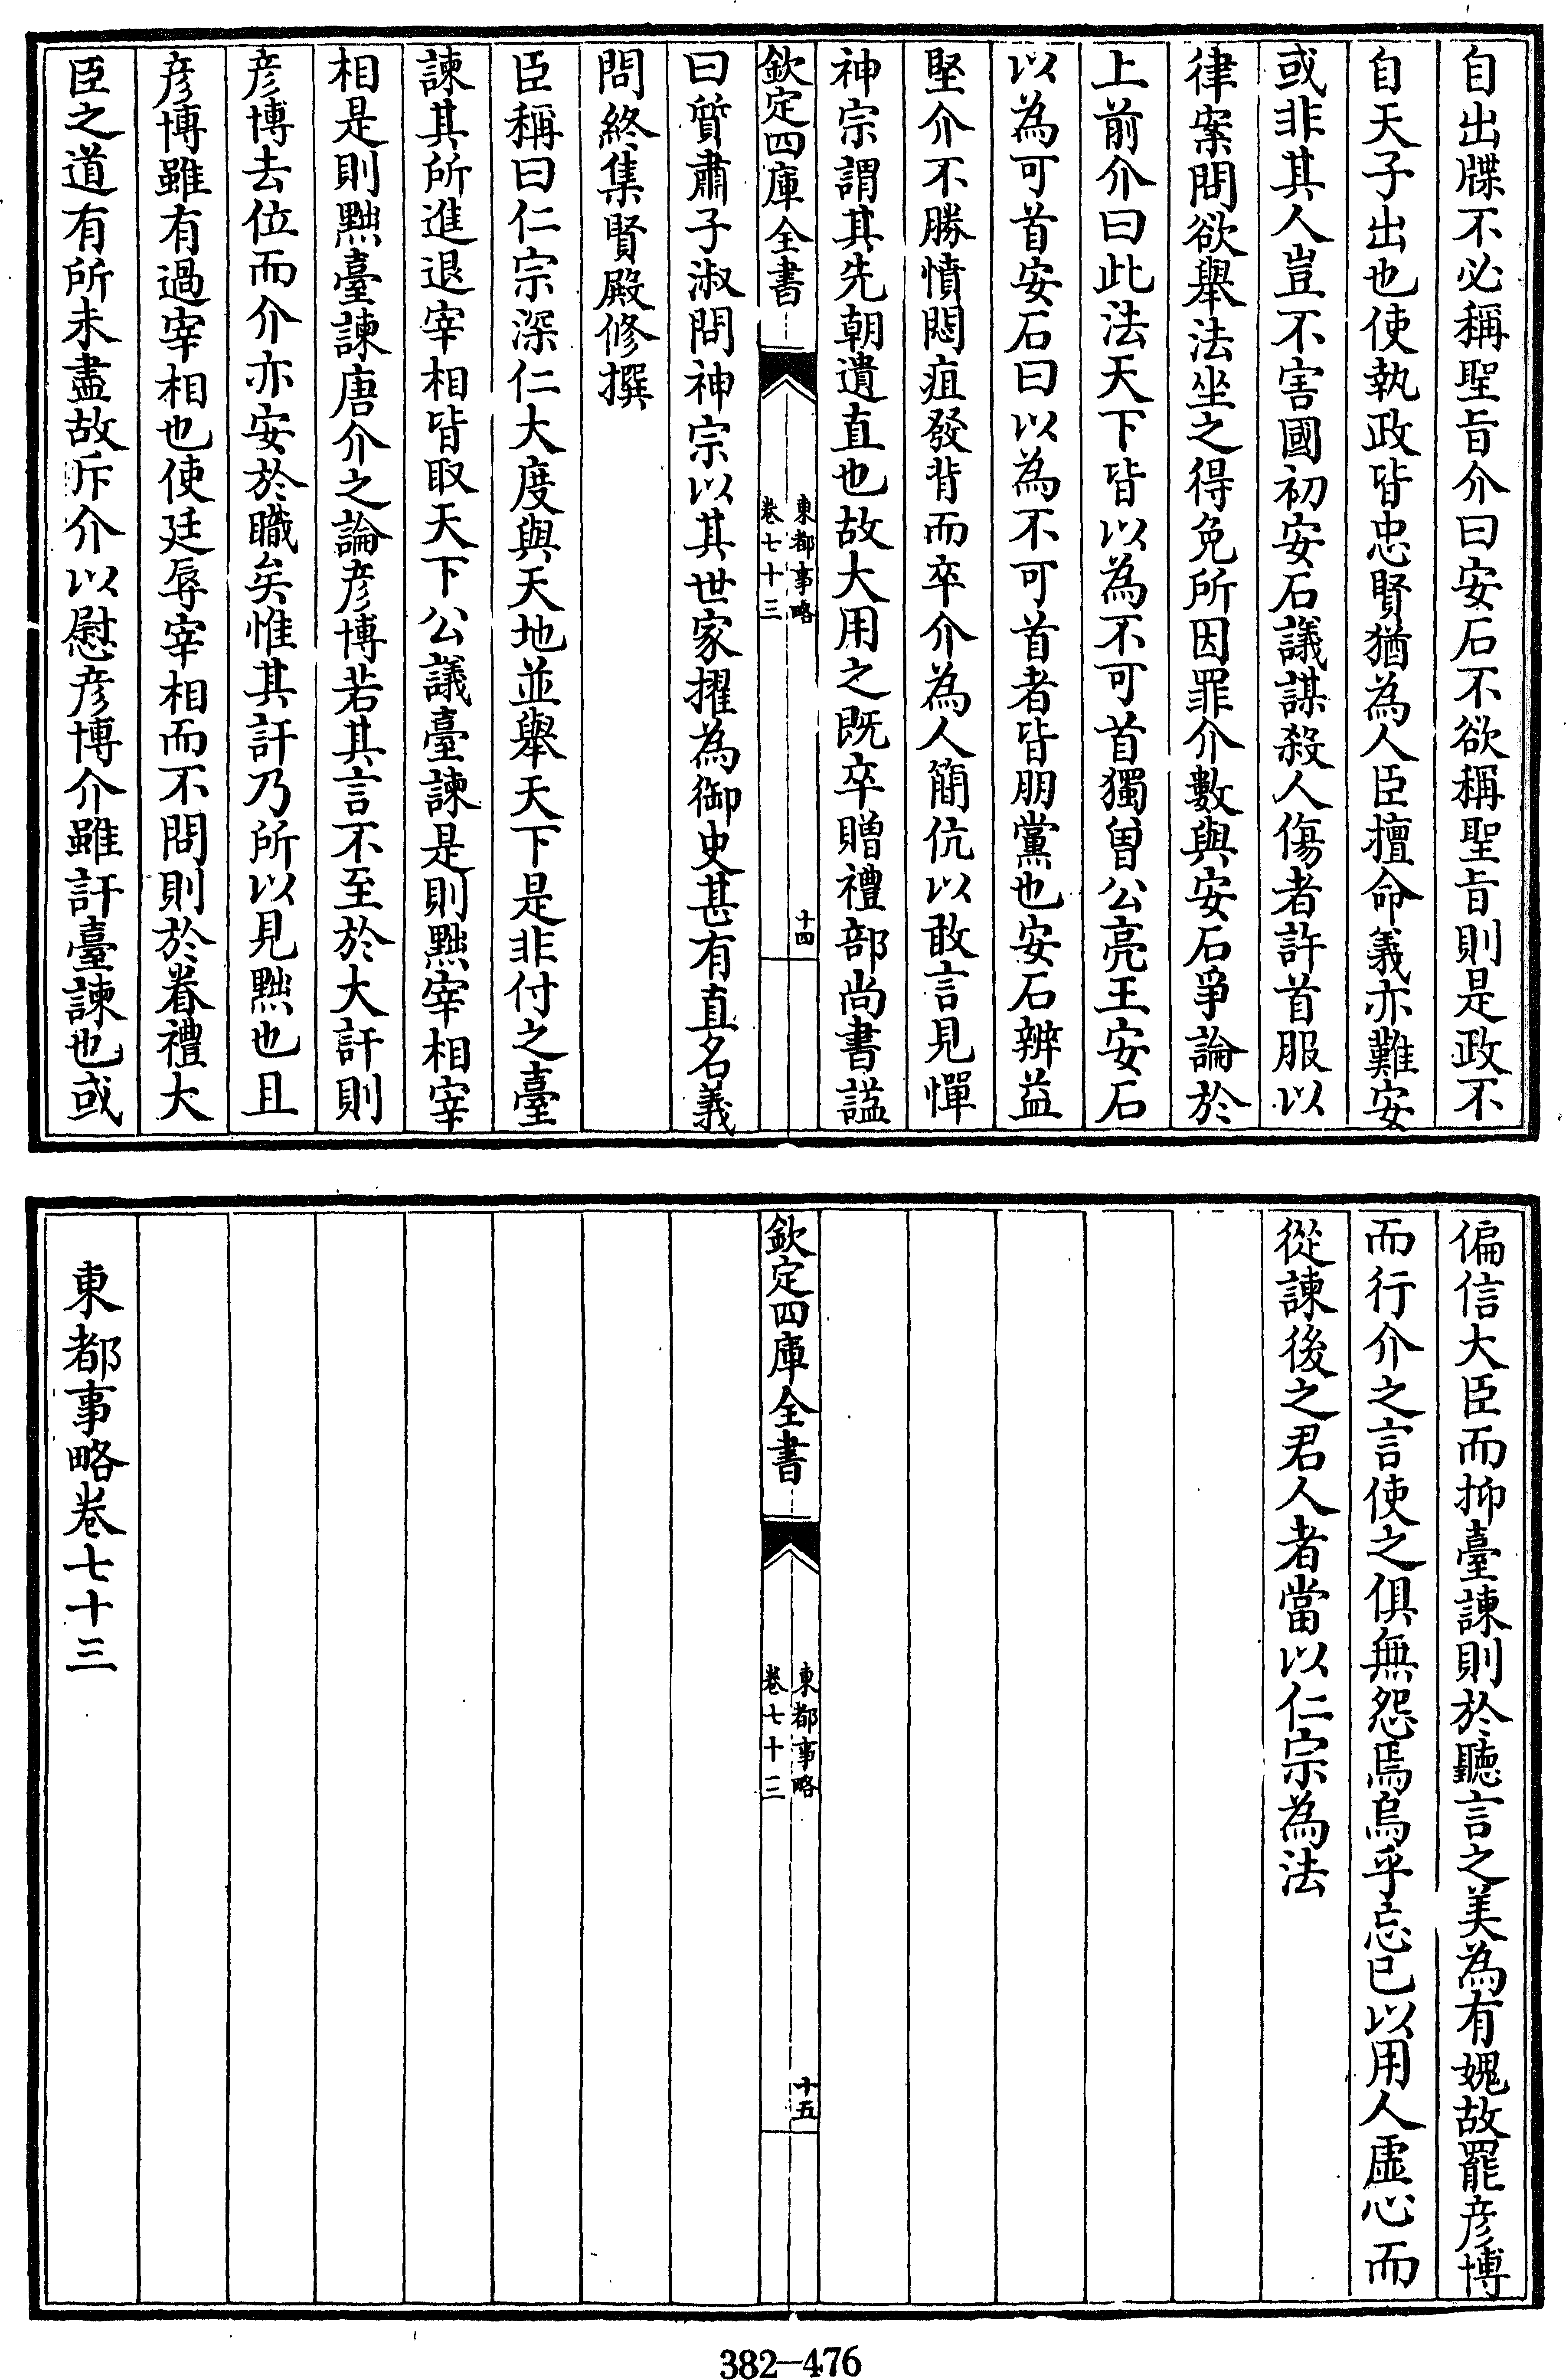 自出牒不必稱聖旨介曰安石不欲稱聖旨則是政不
自天子出也使執政皆忠賢猶為人臣擅命義亦難安
或非其人豈不害國初安石議謀殺人傷者許首服以
律案問欲舉法坐之得免所因罪介數與安石爭論於
上前介曰此法天下皆以為不可首獨曾公亮王安石
以為可首安石曰以為不可首者皆朋黨也安石辨益
堅介不勝憤悶疽發背而卒介為人簡伉以敢言見憚
神宗謂其先朝遺直也故大用之既卒贈禮部尚書諡
欽定四庫全書
東都事略
卷七十三
十四
曰質肅子淑問神宗以其世家擢為御史甚有直名義
問終集賢殿修撰
臣稱曰仁宗深仁大度與天地並舉天下是非付之臺
諫其所進退宰相皆取天下公議臺諫是則黜宰相宰
相是則黜臺諫唐介之論彦博若其言不至於大訐則
彦博去位而介亦安於職矣惟其訐乃所以見黜也且
彦博雖有過宰相也使廷辱宰相而不問則於眷禮大
臣之道有所未盡故斥介以慰彦博介雖訐臺諫也或
偏信大臣而抑臺諫則於聽言之美為有媿故罷彦博
而行介之言使之俱無怨焉烏乎忘已以用人虛心而
從諫後之君人者當以仁宗為法
欽定四庫全書
東都事略
卷七十三
十五
東都事略卷七十三
382-476